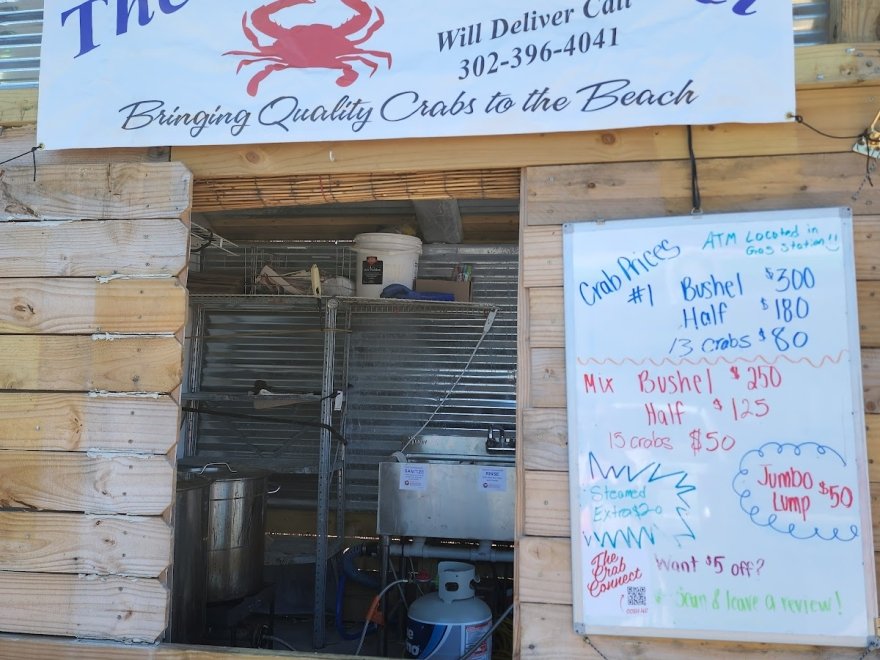 The
Will Deliver Call
302-396-4041
Bringing Quality Crabs to the Beach
Crab Prices
ATM Located in
Gas Station!!
#1 Bushel $300
Half $180
13 crabs $80
Mix Bushel $250
Half $125
15 crabs $50
Steamed
Extra $20
Jumbo
Lump $50
The
Crab
Connect
Want $5 off?
Scan & leave a review!
SANITIZE
RINSE